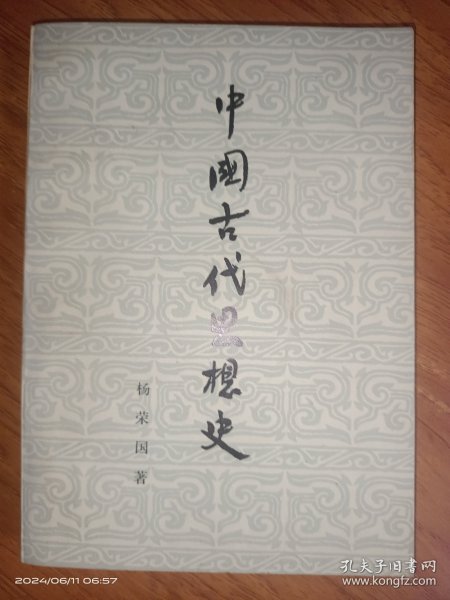 中國古代思想史
杨荣国著
2024/06/11 06:57
孔夫子旧书网
www.kongfz.com